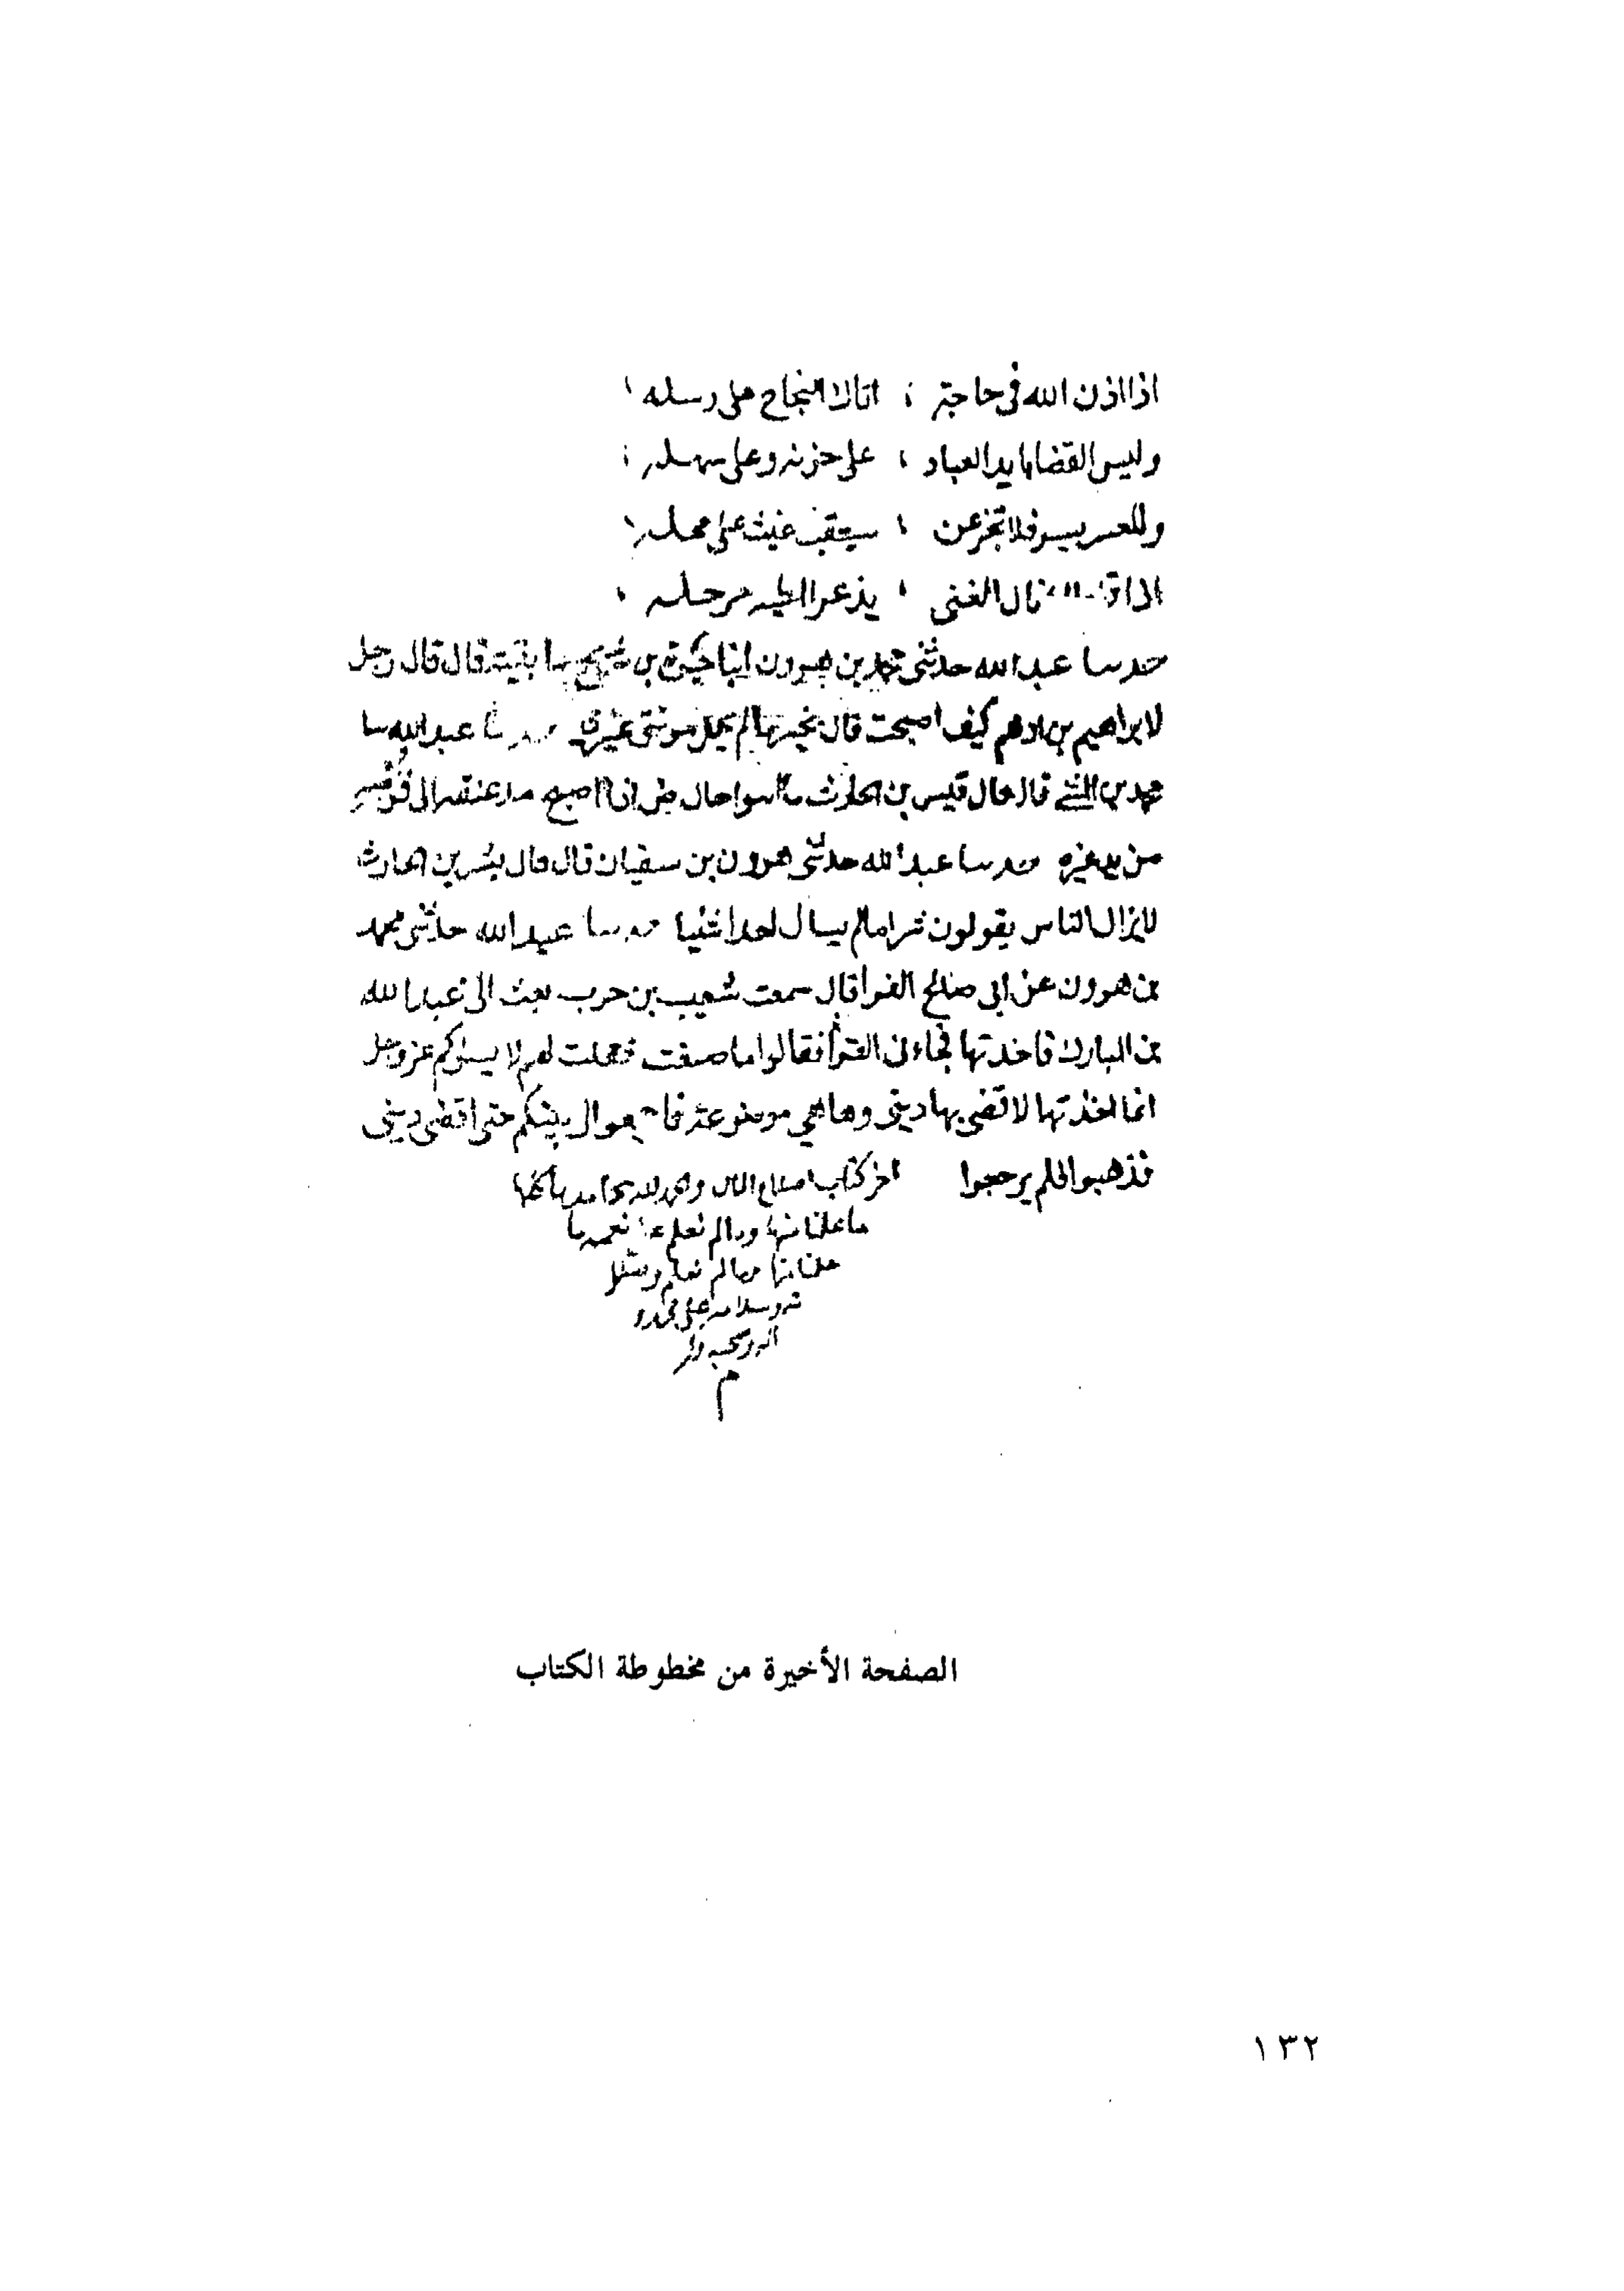 اذا اذن الله في حاجة ؛ اتاك النجاح على رسله
وليس القضا بايد العباد ؛ على حزنه وعلى سهله ؛
وللعسر يسر فلا تجزعن ؛ سيعقب غيث على محله
اذا نال الغنى يذعر الطير من رجله
حدثنا عبد الله حدثني محمد بن هرون انبا حيوة بن شريح نا بقية قال قال رجل
لابراهيم بن ادهم كيف اصبحت قال بخير ما لم يحمل مونتي غيري حدثنا عبد الله نا
محمد بن المثنى قال قال بن الحارث اسوا حال من اذا اصبح مد عنقه الى
من يد غيره حدثنا عبد الله حدثني هرون بن سفيان قال قال بشر بن الحارث
لا يزال الناس يقولون ما لم يسال احدا شيا حدثنا عبد الله حدثني محمد
بن هرون عن ابي صالح الفرا قال سمعت شعيب بن حرب بعث الي عبد الله
بن المبارك فاخذتها فجاءني القرا فقالوا ما صنعت فجعلت لهم لا عز وجل
انما اخذتها لاقضي بها ديني وها هي موضوعة بينكم حتى اقضي ديني
فذهبوا فلم يرجعوا اخر كتاب اصلاح المال والحمد لله بمحامده كلها
ما علمنا منها وما لم نعلم
علمنا منها وما لم نعلم
وسلامه على محمد و
اله وصحبه
م
الصفحة الأخيرة من مخطوطة الكتاب
١٣٢